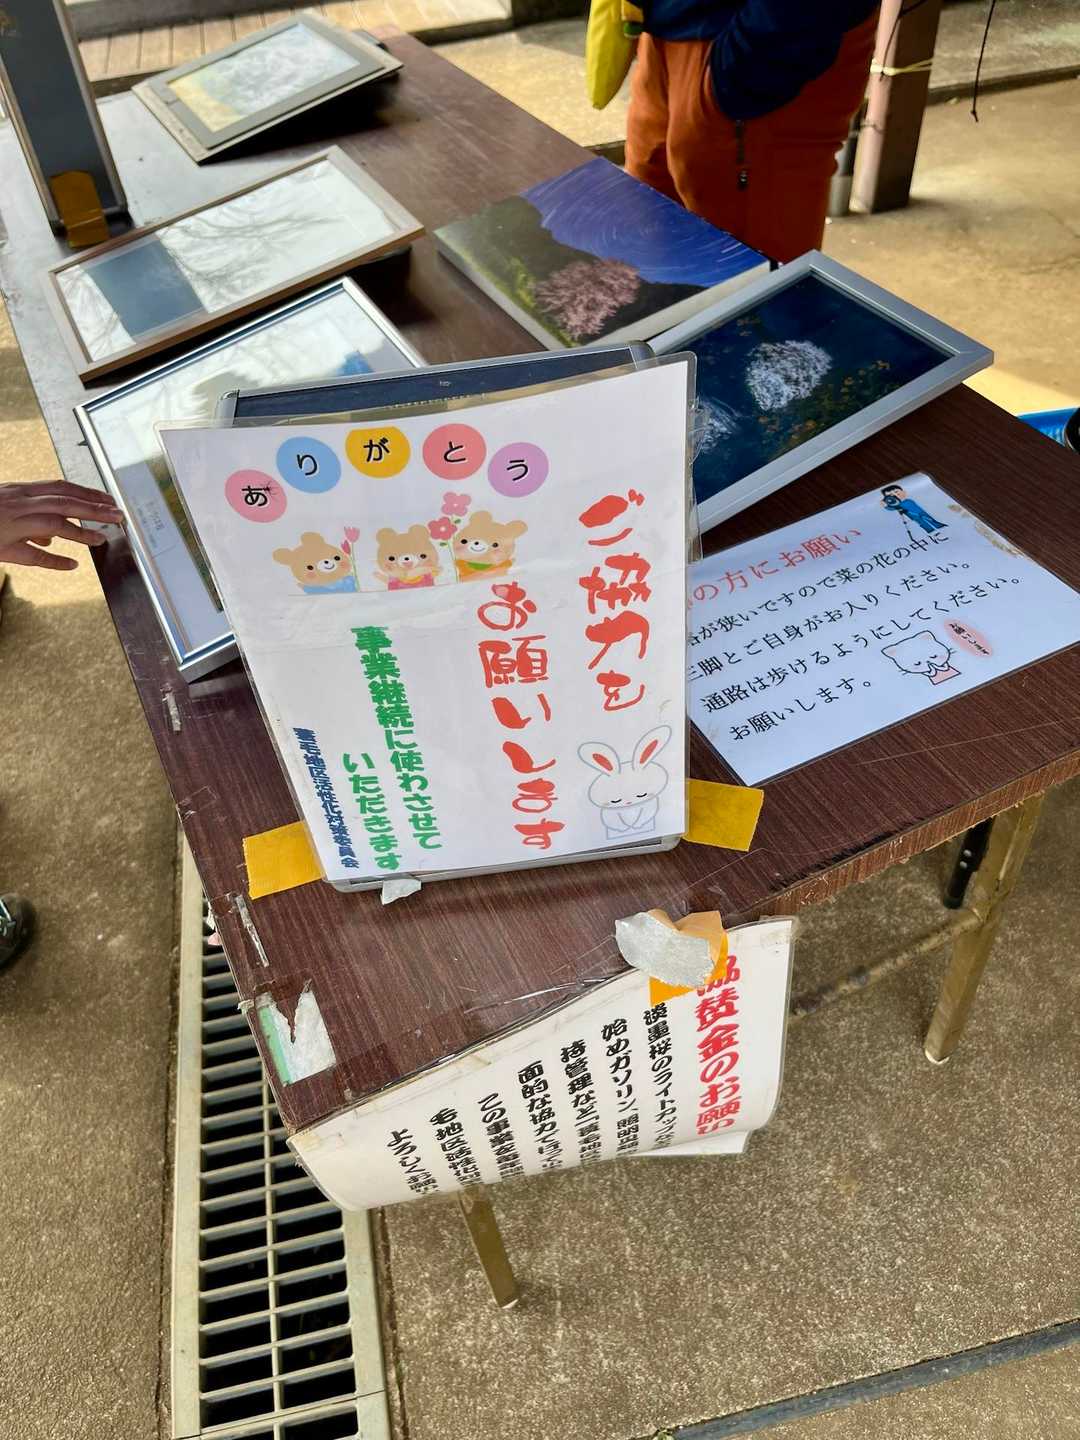 ありがとう
ご協力を
お願いします
事業継続に使わさせて
いただきます
地区活性化対策委員会
の方にお願い
が狭いですので菜の花の中に
三脚とご自身がお入りください。
通路は歩けるようにしてください。
お願いします。
お願いします
協賛金のお願い
淡墨桜のライトアップ
始めガソリン、照明
持管理など「
面的な協力で行ってい
この事業を
毛地区活性化対
よろしくお願い